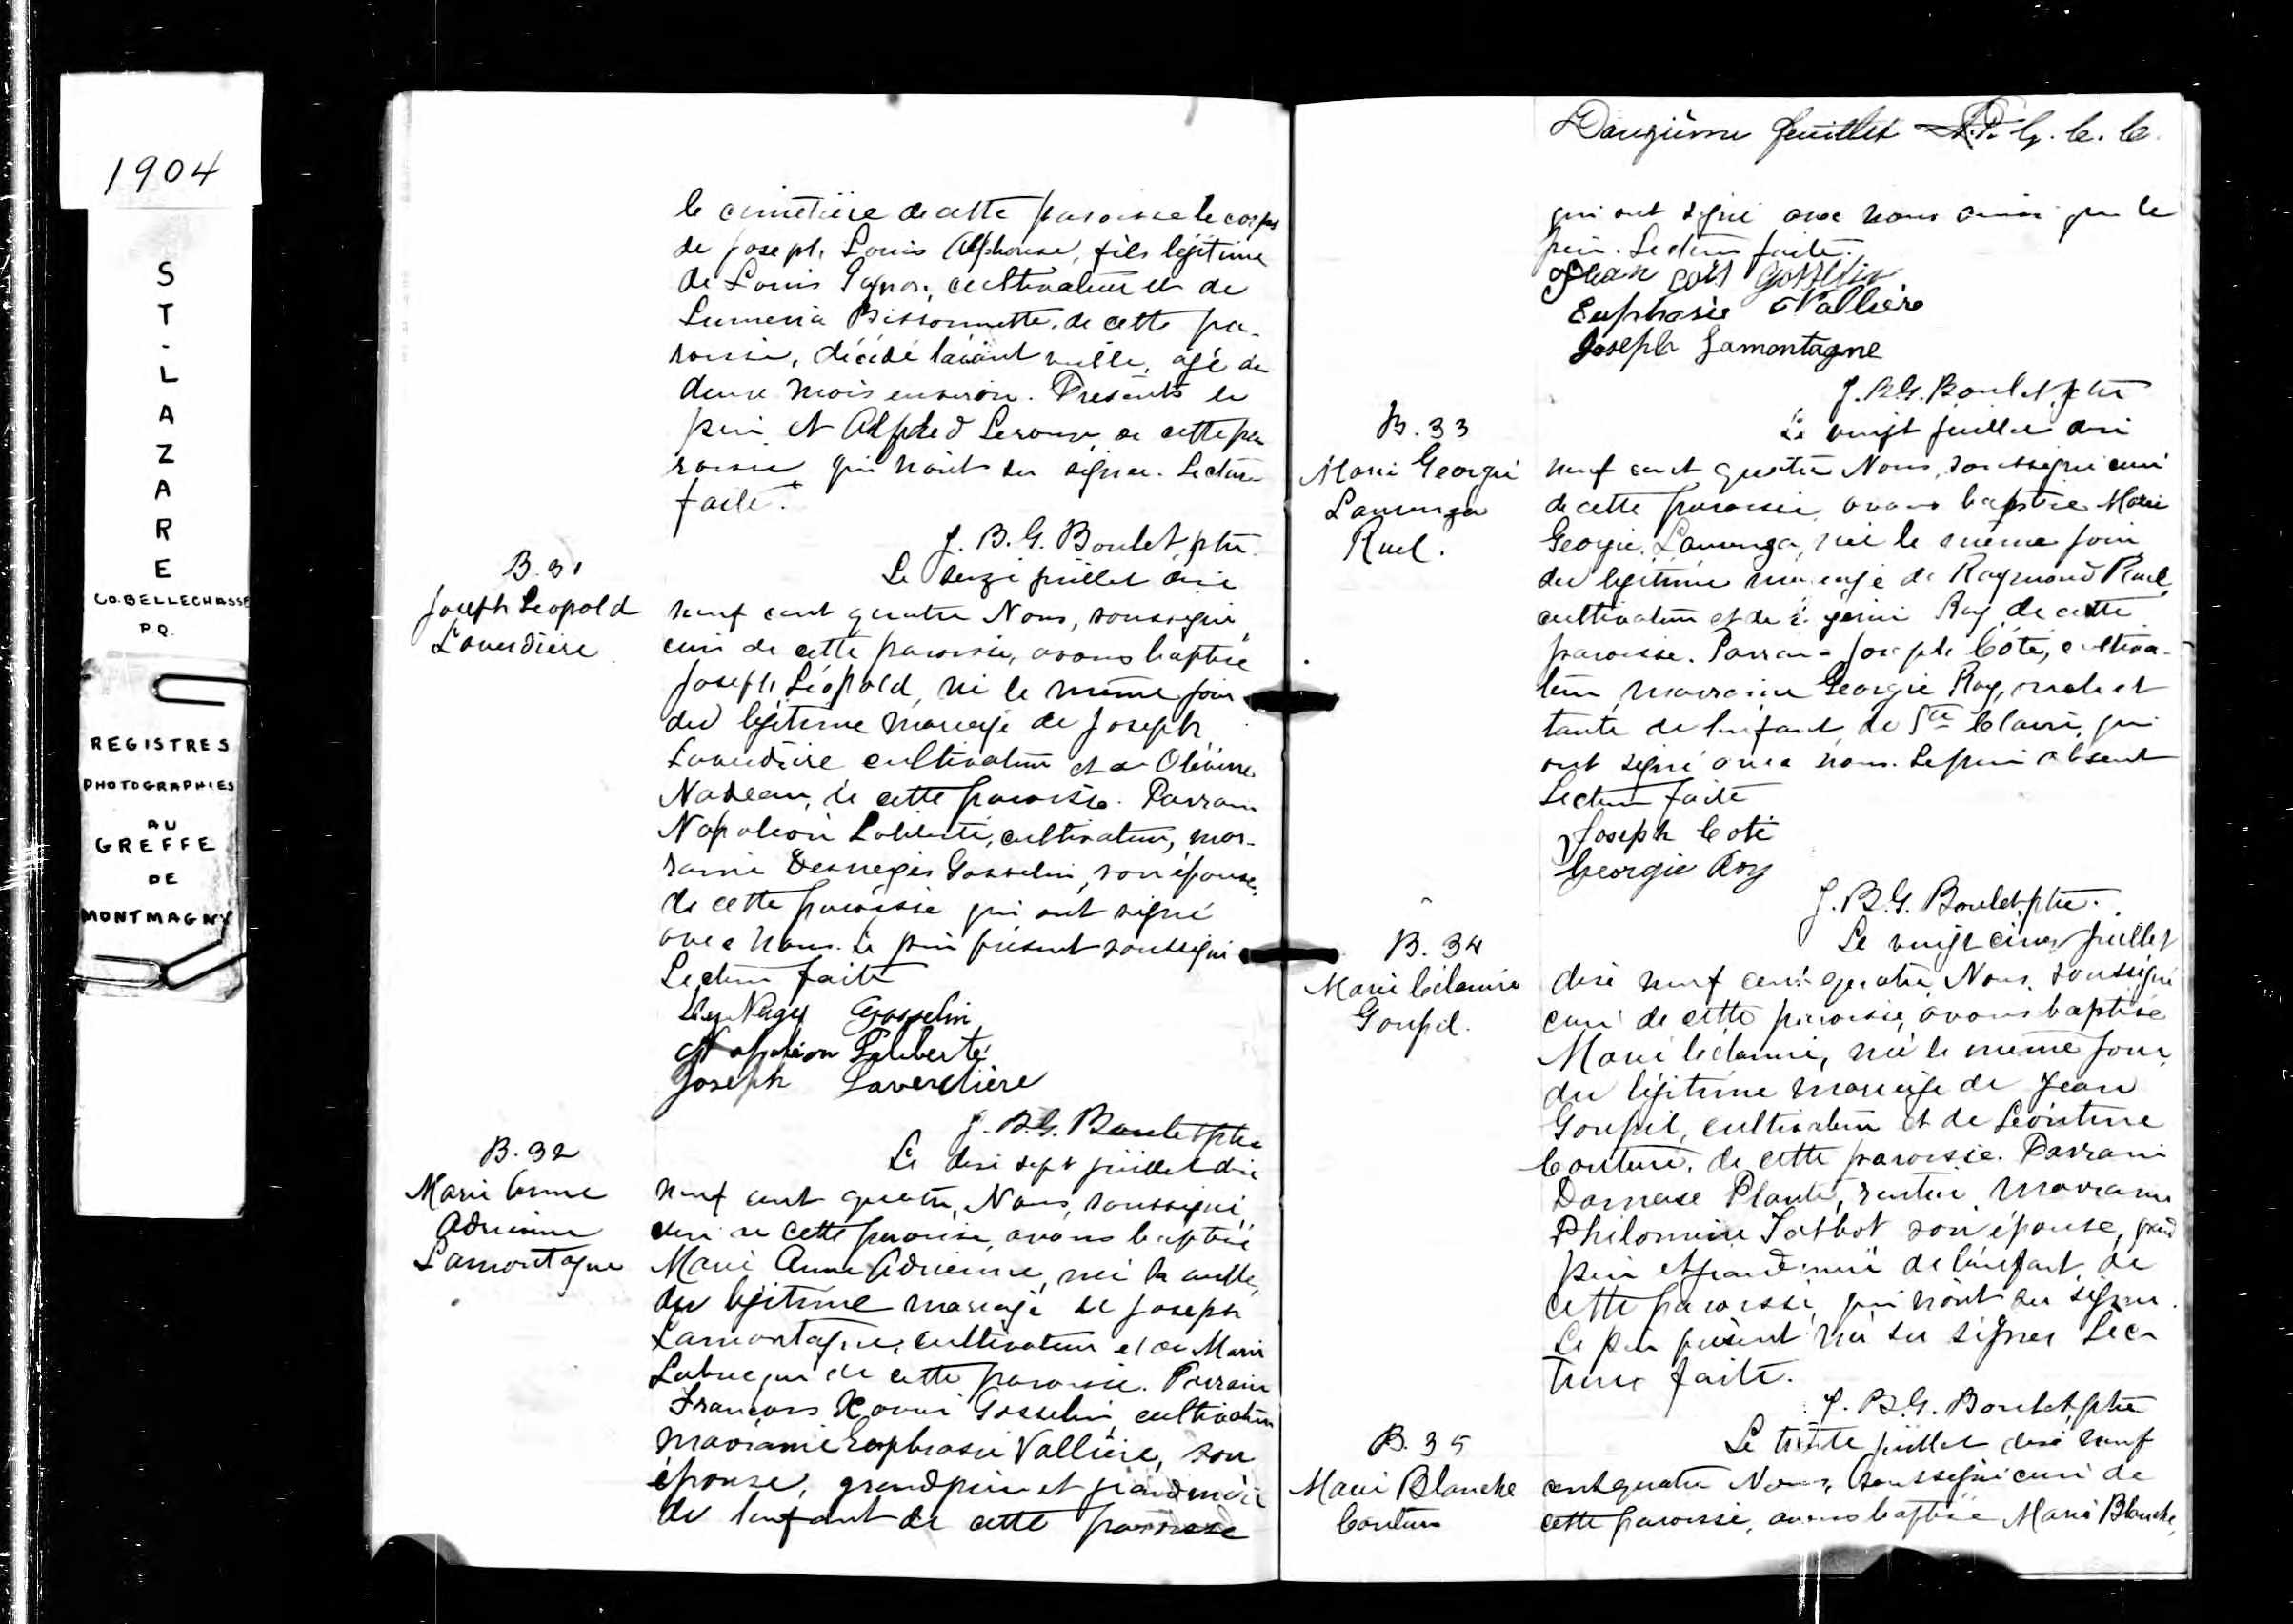 1904
ST-LAZARE
CO. BELLECHASSE
P.Q.
REGISTRES
PHOTOGRAPHIÉS
AU
GREFFE
DE
MONTMAGNY
le cimetière de cette paroisse le corps
de Joseph Louis Alphonse, fils légitime
de Louis cultivateur et de
Bissonnette, de cette pa-
roisse, décédé l'avant veille, agé de
deux mois environ. Présents le
père et Alfred Leroux de cette pa
roisse qui n'ont su signer. Lecture
faite.
J. B. G. Boulet, ptre.
B. 31
Joseph Léopold
Laverdière
Le seize juillet dix
neuf cent quatre Nous, soussigné
curé de cette paroisse, avons baptisé
Joseph Léopold, né le même jour
du légitime mariage de Joseph
Laverdière cultivateur et de
Nadeau, de cette paroisse. Parrain
Napoléon Laliberté, cultivateur, mar-
raine Desneges Gosselin, son épouse,
de cette paroisse qui ont signé
avec nous. Le père présent soussigné
Lecture faite
Gosselin
Napoléon Laliberté
Joseph Laverdière
J. B. G. Boulet ptre
B. 32
Marie Anne
Adrienne
Lamontagne
Le dix sept juillet dix
neuf cent quatre, Nous, soussigné,
curé de cette paroisse, avons baptisé
Marie Anne Adrienne, née la veille,
du légitime mariage de Joseph
Lamontagne, cultivateur et de Marie
Labrecque de cette paroisse. Parrain
François Xavier Gosselin, cultivateur
marraine Euphrasie Vallière, son
épouse, grandpère et grandmère
de l'enfant de cette paroisse
Douzième feuillet
qui ont signé avec nous ainsi que le
père. Lecture faite.
Gosselin
Euphrasie Vallière
Joseph Lamontagne
J. B. G. Boulet, ptre
B. 33
Marie Georgie
Laurenza
Ruel.
Le vingt juillet dix
neuf cent quatre Nous, soussigné curé
de cette paroisse, avons baptisé Marie
Georgie, Laurenza, née le même jour,
du légitime mariage de Raymond Ruel,
cultivateur et de Roy de cette
paroisse. Parrain Joseph Côté, cultiva-
teur, marraine Georgie Roy, oncle et
tante de l'enfant, de Ste Claire, qui
ont signé avec nous. Le père absent
Lecture faite
Joseph Coté
Georgie Roy
J. B. G. Boulet, ptre.
B. 34
Marie Clédamire
Goupil.
Le vingt cinq juillet
dix neuf cent quatre Nous, soussigné
curé de cette paroisse, avons baptisé
Marie née le même jour,
du légitime mariage de Jean
Goupil, cultivateur et de Léontine
Couture, de cette paroisse. Parrain
Damase Plante, rentier, marraine
Philomène Talbot son épouse, grand
père et grand'mère de l'enfant, de
cette paroisse, qui n'ont su signer.
Le père présent n'a su signer Lec-
ture faite.
J. B. G. Boulet, ptre
B. 35
Marie Blanche
Couture
Le trente juillet dix neuf
cent quatre Nous, soussigné curé de
cette paroisse, avons baptisé Marie Blanche,